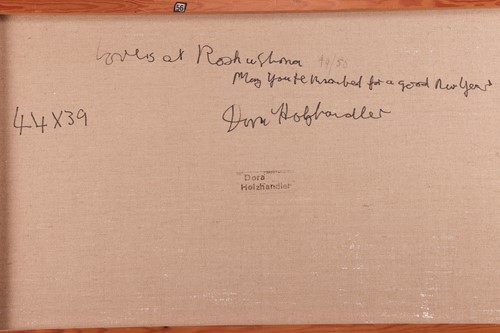 56
Lovers at Roshushona
May You be Inscribed for a good New Year
44X39
Dora Holzhandler
Dora
Holzhandler